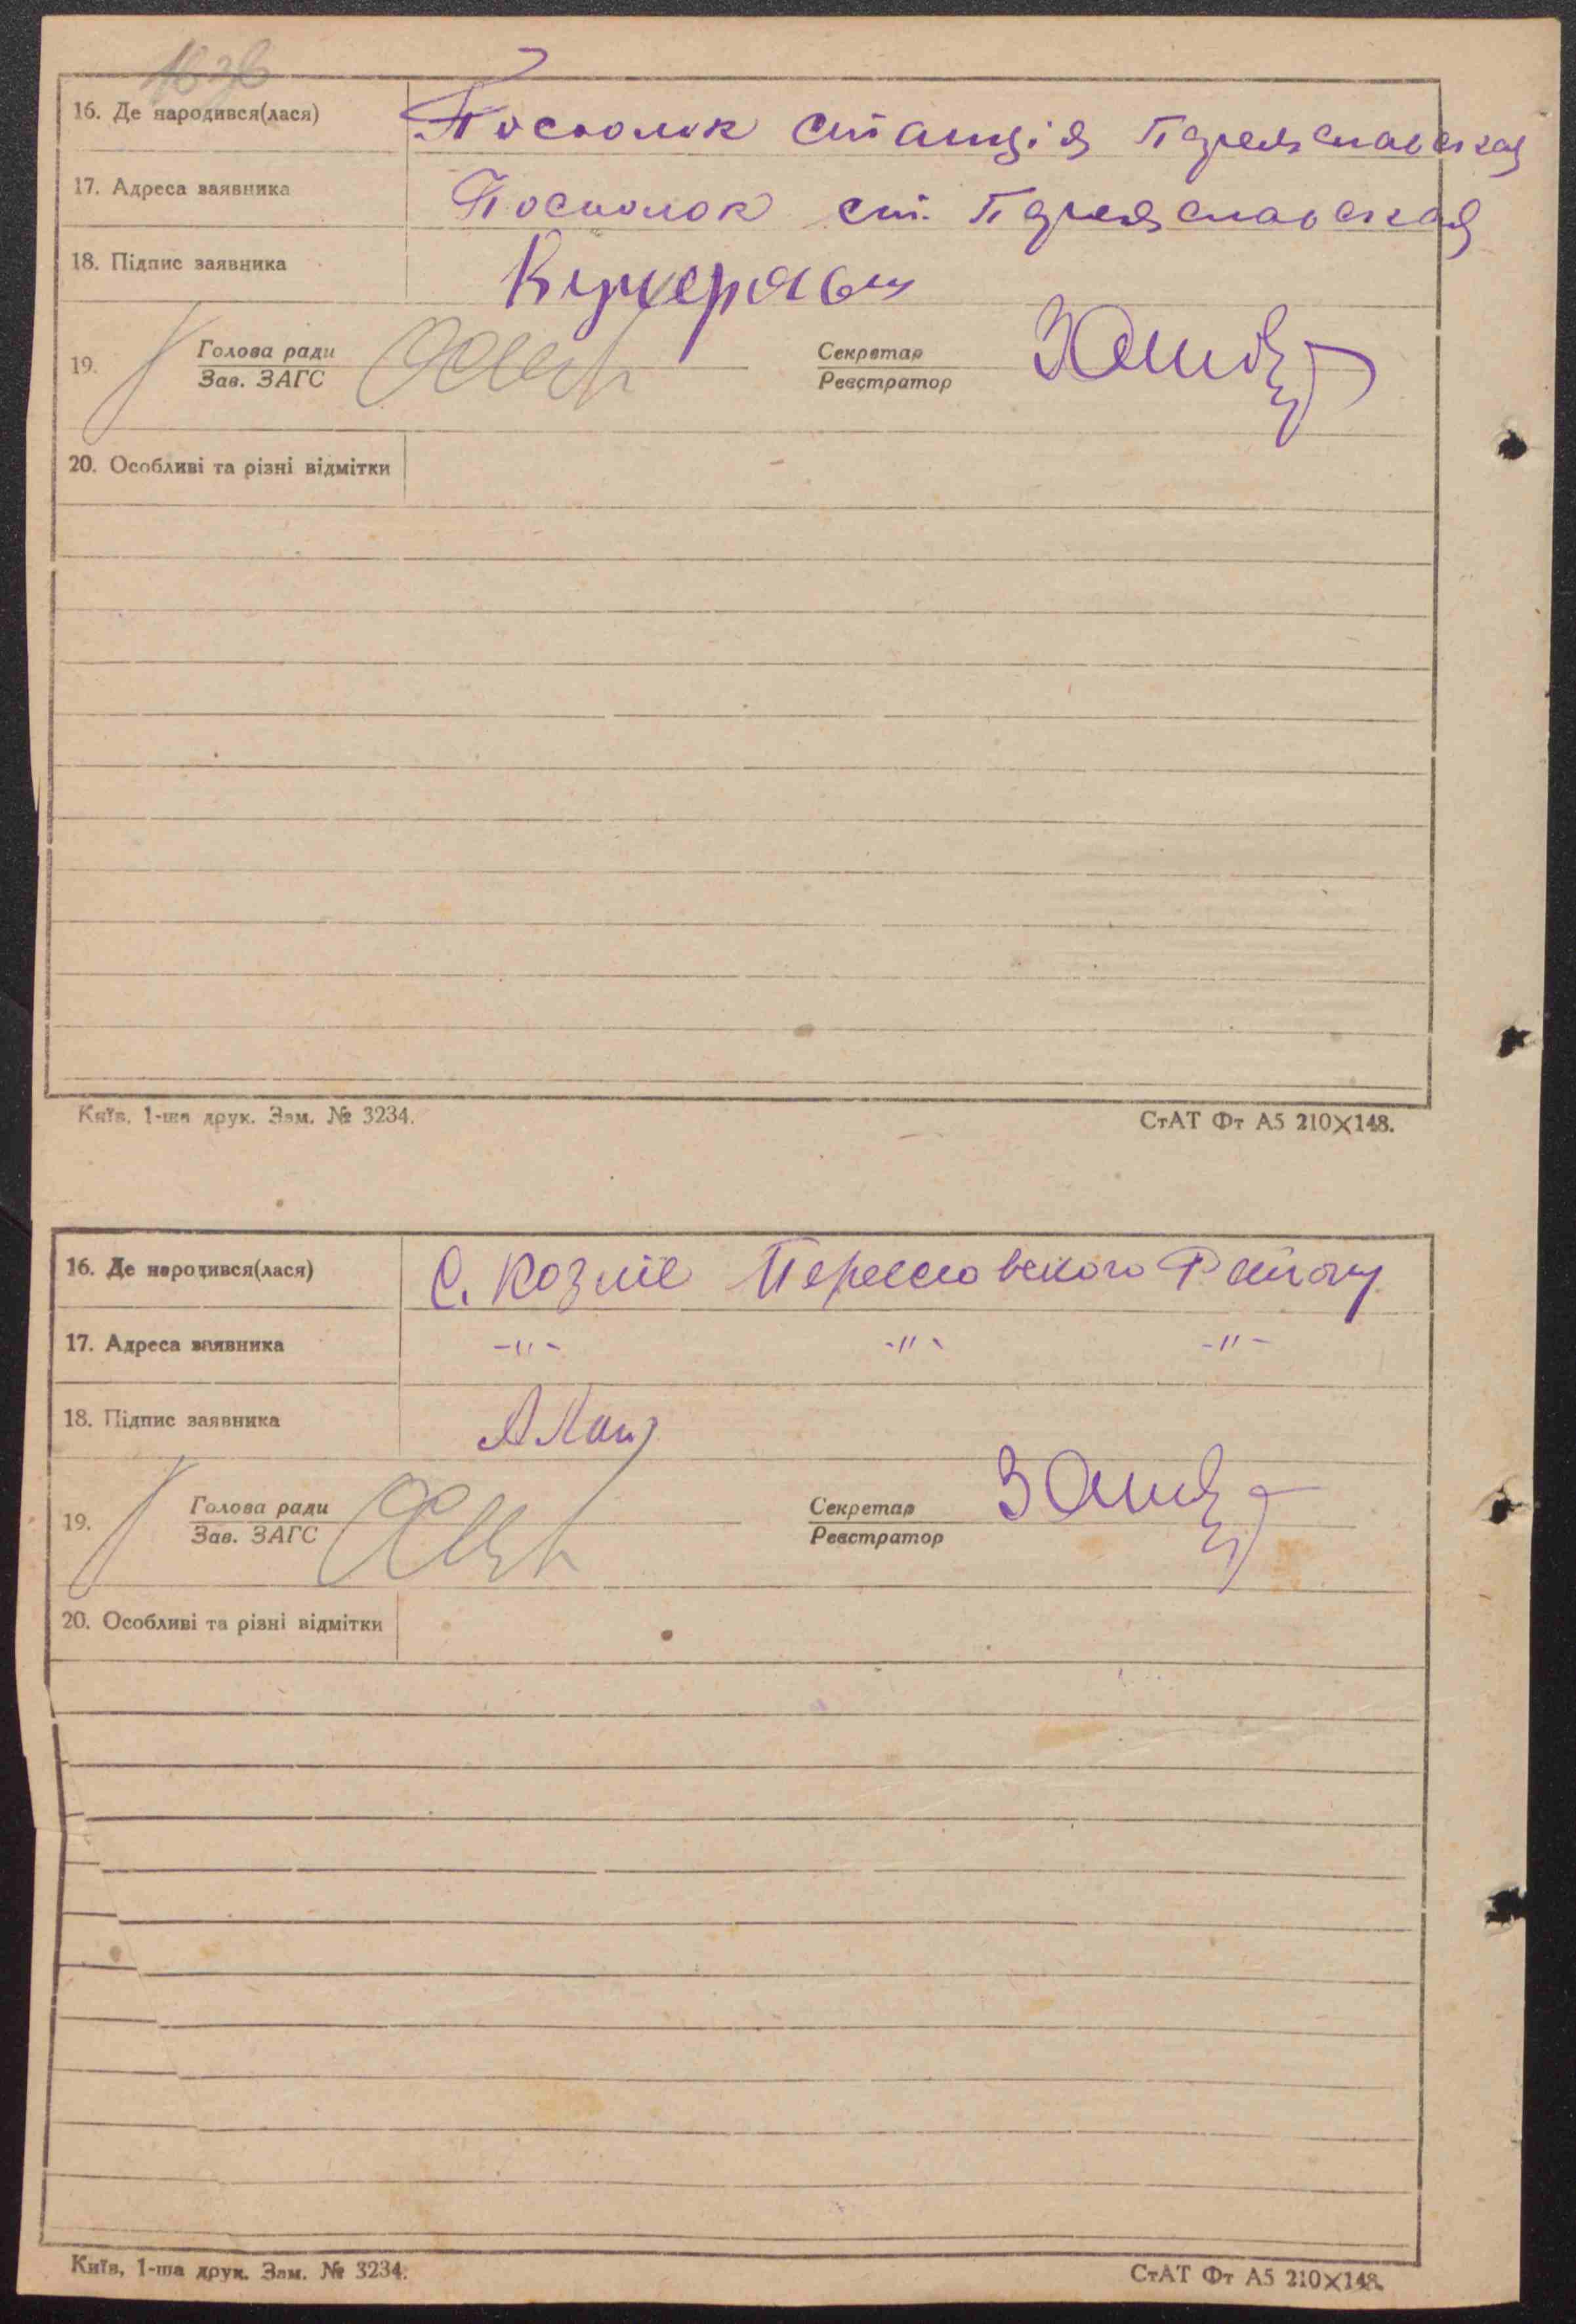 16. Де народився(лася) Посьолок станція Переяславская
17. Адреса заявника Посьолок ст. Переяславская
18. Підпис заявника
19. Голова ради Секретар
Зав. ЗАГС Реєстратор
20. Особливі та різні відмітки
Київ, 1-ша друк. Зам. № 3234. СтАТ Фт А5 210×148.
16. Де народився(лася) С. Козлів Переяслов Району
17. Адреса заявника -"- -"- -"-
18. Підпис заявника
19. Голова ради Секретар
Зав. ЗАГС Реєстратор
20. Особливі та різні відмітки
Київ, 1-ша друк. Зам. № 3234. СтАТ Фт А5 210×148.